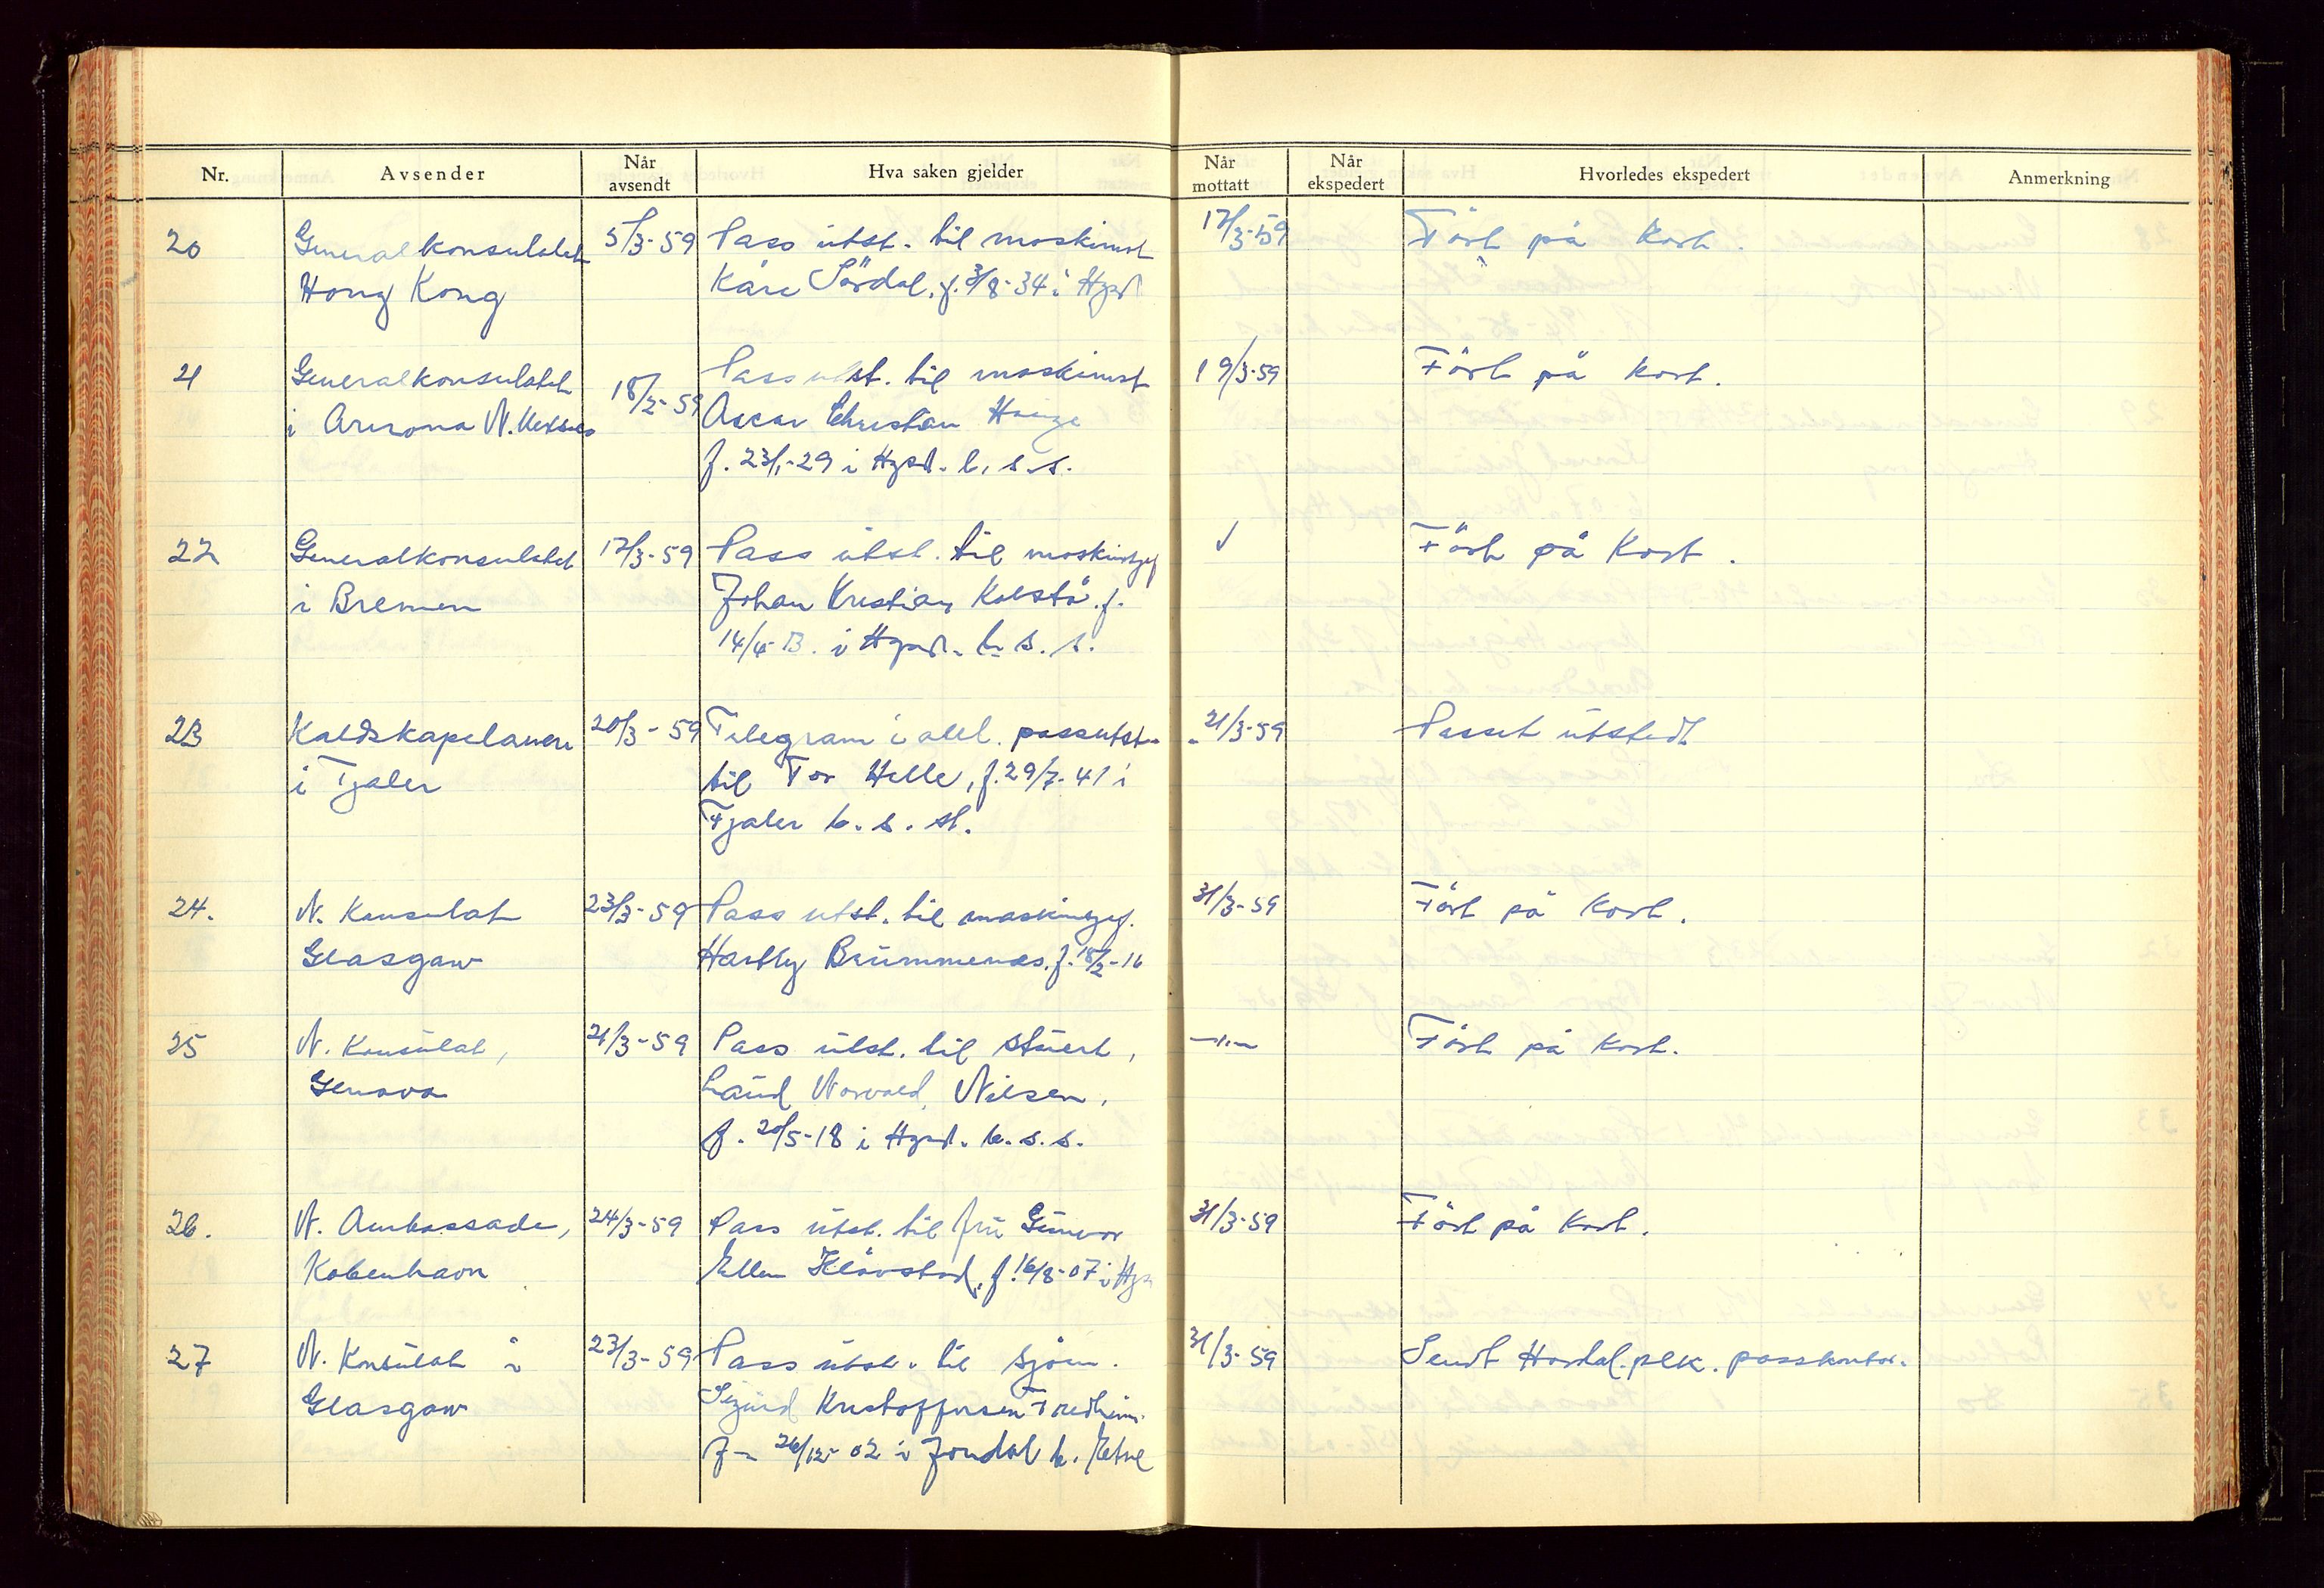 Nr. Avsender Når avsendt Hva saken gjelder Når mottatt Når ekspedert Hvorledes ekspedert Anmerkning
20 Generalkonsulatet 5/3-59 Pass utst. til maskinist 17/3-59 Ført på kort.
Hong Kong Kåre Sørdal, f. 3/8-34 i Hgsd
21 Generalkonsulatet 18/2-59 Pass utst. til maskinist 19/3-59 Ført på kort.
i Arizona N. Oscar Christian Hauge
f. 23/1-29 i Hgsd. b. s. s.
22 Generalkonsulatet 17/3-59 Pass utst. til maskinsjef ✓ Ført på kort.
i Bremen Johan Kristian Kolstø. f.
14/4-13. i Hgsd. b. s. s.
23 Kaldskapelanen 20/3-59 Telegram i all. passutst. 21/3-59 Passet utstedt
i Fjaler til Tor Helle, f. 29/7-41 i
Fjaler b. s. st.
24. N. Konsulat 23/3-59 Pass utst. til maskinsjef. 31/3-59 Ført på kort.
Glasgow Hartly Brummenæs. f. 18/2-16
25 N. Konsulat, 21/3-59 Pass utst. til stuert, -"- Ført på kort.
Genova Laud Norvald, Nilsen,
f. 20/5-18 i Hgsd. b. s. s.
26. N. Ambassade, 24/3-59 Pass utst. til fru Gunvor 31/3-59 Ført på kort.
Kobenhavn Ellen Kløvstad, f. 16/8-07 i Hgs
27 N. Konsulat i 23/3-59 Pass utst. til sjøm. 31/3-59 Sendt Hordal. plk. passkontor.
Glasgow Sigurd Kristoffersen Fredheim.
f. 26/12-02 i Jondal b. Etne